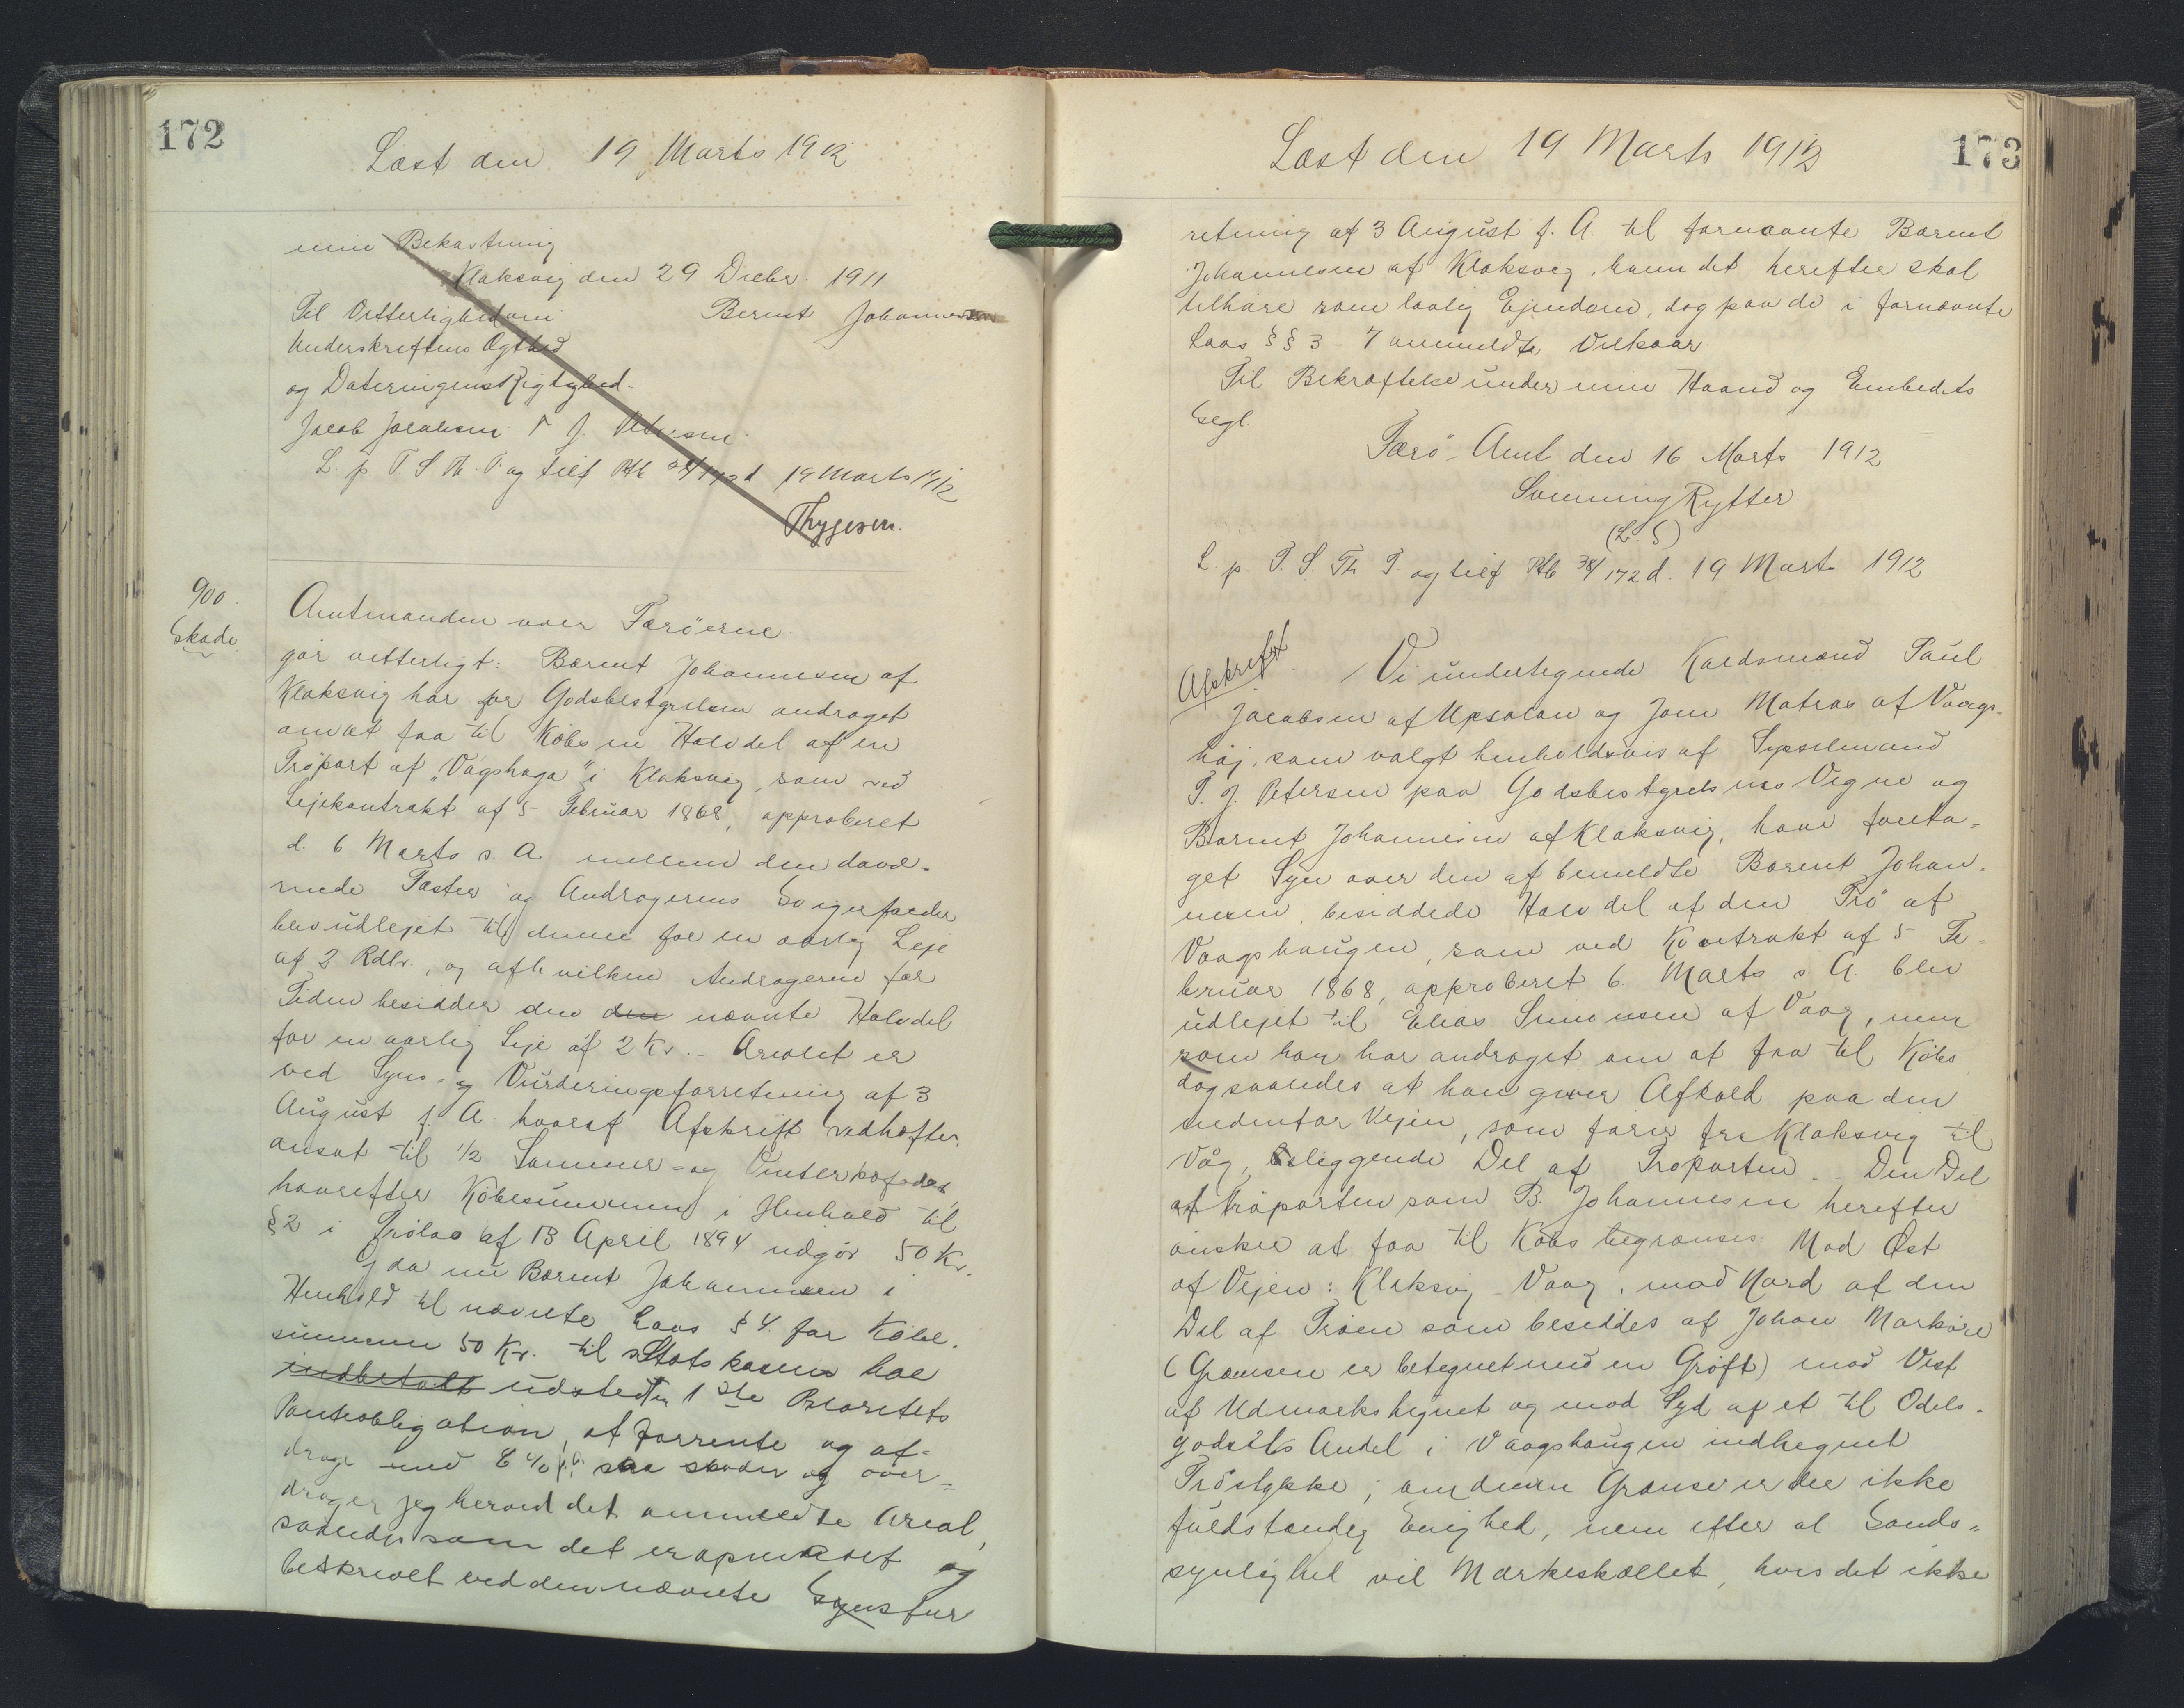 172
Læst den 19 Marts 1912
min Bekostning
Klaksvig den 29 Decbr. 1911
Til Vitterlighed om Berent Johannesen
Underskriftens Ægthed
og Dateringens Rigtighed.
Jacob Jacobsen P J. Petersen
L. p. T. S. Th. T. og tilf Ptb 38/172 d 19 Marts 1912
Thygesen.
900.
Skade.
Amtmanden over Færöerne.
gör vitterligt: Bærent Johannesen af
Klaksvig har for Godsbestyrelsen andraget
om at faa til Köbs en Halvdel af en
Tröpart af "Vágshaga" i Klaksvig, som ved
Lejekontrakt af 5 Februar 1868, approberet
d. 6 Marts s. A. mellem den davæ-
rende Fæster og Andragerens Svigerfader
blev udlejet til denne for en aarlig Leje
af 2 Rdlr., og af hvilken Andrageren for
Tiden besidder den den nævnte Halvdel
for en aarlig Leje af 2 Kr. - Arealet er
ved Syns- og Vurderingsforretning af 3
August f. A. hvoraf Afskrift vedhæfter,
ansat til 1/2 Sommer- og Vinterkofoder,
hvorefter Köbesummen i Henhold til
§ 2 i Trölov af 13 April 1894 udgör 50 Kr.
Og da nu Bærent Johannesen i
Henhold til nævnte Lovs § 4. for Köbe-
summen 50 Kr. til Statskassen har
indbetalt udstedt en 1ste Prioritets
Panteobligation, at forrente og af-
drage med 6 % p. a. saa skøder og over-
drager jeg herved det ommeldte Areal,
saaledes som det er opmaalt og
beskrevet ved den nævnte Synsfor
173
Læst den 19 Marts 1912
retning af 3 August f. A. til fornævnte Bærent
Johannesen af Klaksvig, hvem det herefter skal
tilhøre som lovlig Ejendom, dog paa de i fornævnte
Lovs §§ 3 - 7 ommeldte Vilkaar.
Til Bekræftelse under min Haand og Embedets
Segl.
Færö Amt den 16 Marts 1912
Svenning Rytter.
(L. S)
L. p. T. S. Th T. og tilf Ptb 38/172 d. 19 Marts 1912
Afskrift.
Vi undertegnede Paul
Jacobsen af Upsalon og Joen Matras af Vaags-
höj, som valgt henholdsvis af Sysselmand
T. J. Petersen paa Godsbestyrelsens Vegne og
Bærent Johannesen af Klaksvig, have foreta-
get Syn over den af bemeldte Bærent Johan-
nesen besiddede Halvdel af den Trö af
Vaagshaugen, som ved Kontrakt af 5 Fe-
bruar 1868, approberet 6. Marts s. A. blev
udlejet til Elias Simonsen af Vaag, men
som han har andraget om at faa til Köbs
dog saaledes at han giver Afkald paa den
nedenfor Vejen, som förer fra Klaksvig til
Vág, beleggende Del af Tröparten. - Den Del
af Tröparten som B. Johannesen herefter
önsker at faa til Köbs begrænses: Mod Øst
af Vejen: Klaksvig - Vaag, mod Nord af den
Del af Tröen som besiddes af Johan Markøre
(Grænsen er betegnet med en Gröft) mod Vest
af Udmarkshegnet og mod Syd af et til Odels-
godsets Andel i Vaagshaugen indhegnet
Tröstykke; om denne Grænse er der ikke
fuldstændig Enighed, men efter al Sand-
synlighed vil Markeskællet, hvis det ikke